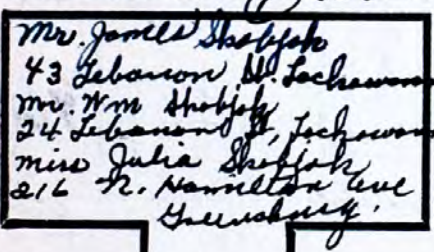 Mr. James Skobjak
43 Lebanon St. Lackawann
Mr. Wm Skobjak
24 Lebanon St, Lackawann
Miss Julia Skobjak
216 N. Hamilton Ave
Greensburg.